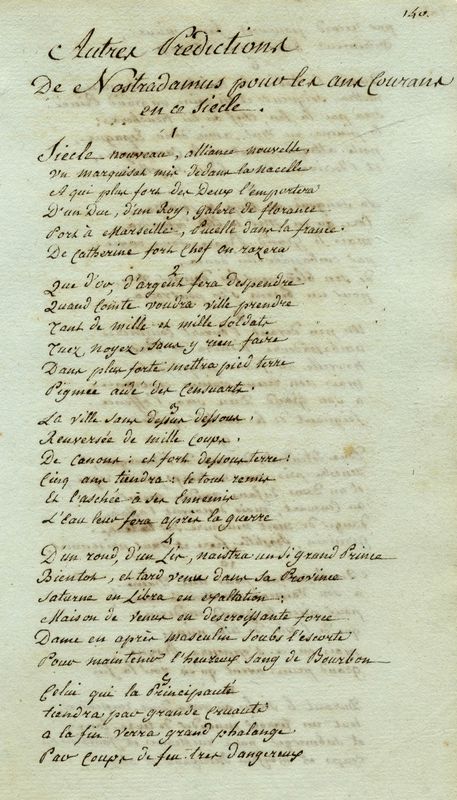 140.
Autres Prédictions
De Nostradamus pour les ans Courans
en ce Siècle.
1
Siècle nouveau, alliance nouvelle,
Un marquisat mis dedans la nacelle
A qui plus fort des Deux l'emportera
D'un Duc, d'un Roy, galere de florance
Port à Marseille, Pucelle dans la france.
De Catherine fort Chef on razera
2
Que d'or, d'argent fera despendre
Quand Comte voudra ville prendre
Tant de mille et mille soldats
Tuez, noyez, sans y rien faire
Dans plus forte mettra pied terre
Pigmée aidé des Censuarts.
3
La ville sans dessus dessous,
Renversée de mille coups,
De Canons: et fort dessous terre:
Cinq ans tiendra: le tout remis
Et laschée à ses Ennemis
L'Eau leur fera après la guerre
4
D'un rond, d'un Lis, naistra un si grand Prince
Bientost, et tard venu dans sa Province
Saturne en Libra en exaltation:
Maison de venus en descroissante force
Dame en après masculin soubs l'escorte
Pour maintenir l'heureux sang de Bourbon
5
Celui qui la Principauté
tiendra par grande cruauté
a la fin verra grand phalange
Par coups de feu tres dangereux